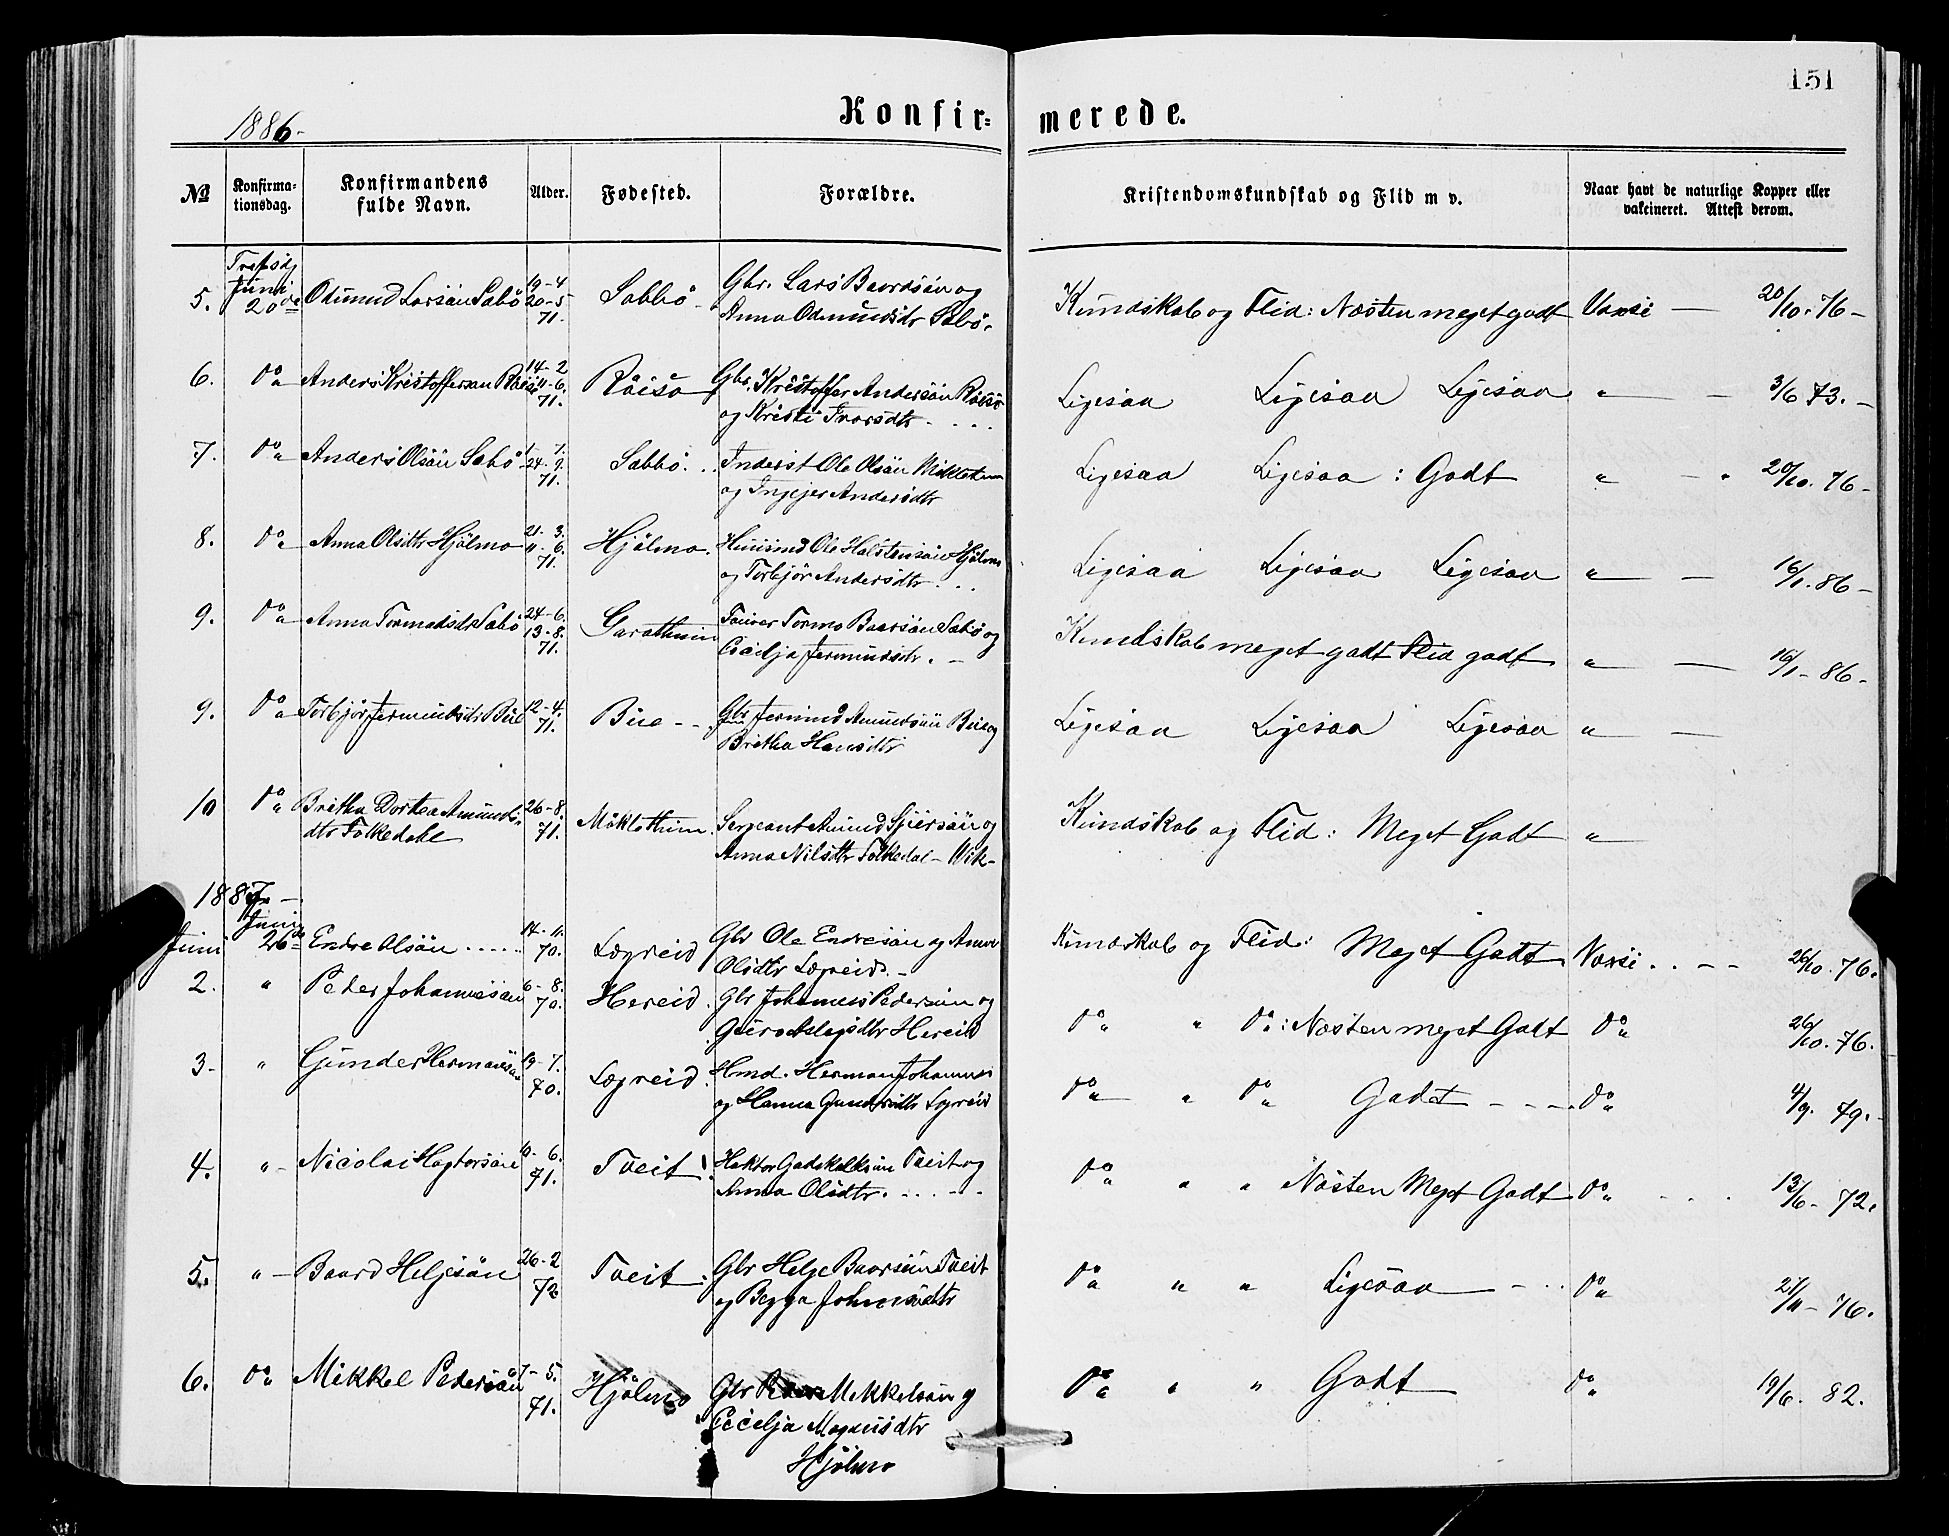 151
1886-
Konfir=merede.
№
Konfirma-
tionsdag.
Konfirmandens
fulde Navn.
Alder.
Fødested.
Forældre.
Kristendomskundskab og Flid m v.
Naar havt de naturlige Kopper eller
vakcineret. Attest derom.
5. Juni 20de Odmund Larsön Sæbö 19-4 20-5 71. Sæbbö - Gbr. Lars Baardsön og
Anna Odmundsdtr Sæbö.
Kundskab og Flid: Næsten meget godt Varsi — 20/10. 76-
6. Do Anders Kristoffersøn Röisø 14-2 11-6. 71. Röisø Gbr. Kristoffer Andersön Röisø
og Kristi Ivarsdtr. . . .
Ligesaa Ligesaa Ligesaa " — 3/6 73. -
7. Do Anders Olsön Sæbö 1-7. 24-9. 71. Sæbbö. . . Inderst Ole Olsön Miklatun
og Ingejer Andersdtr
Ligesaa Ligesaa : Godt " — 20/10. 76-
8. Do Anna Olsdtr Hjölmo 21-3. 11-6. 71. Hjölmo. Husmd Ole Halstensön Hjölmo
og Torbjör Andersdtr . . .
Ligesaa Ligesaa Ligesaa " — 16/1. 86-
9. Do Anna Tormodsdtr Sæbö 24-6. 13-8. 71. Garathun Tormo Baarsön Sæbö og
Cicilja Jermunsdtr. -
Kundskab meget godt Flid godt " — 16/1- 86-
9. Do Torbjör Jermundsdtr Bue 12-4. 71. Bue - - Gbr Jermund Amundsön Bue og
Britha Hansdtr
Ligesaa Ligesaa Ligesaa " —
10 Do Britha Dortea Amunds-
dtr Folkedahl 26-8. 71. Måklethun. Sergeant Amund Sjursön og
Anna Nilsdtr Folkedal - Wik-
Kundskab og Flid: Meget Godt "
1887 -
Juni 26de Endre Olsön . . . . . 14-11. 70. Lægreid Gbr Ole Endresön og Anna
Olsdtr Lægreid. -
Kundskab og Flid: Meget Godt Varsi. . - - 26/10. 76.
2. " Peder Johannesön 6-8. 70. Hereid. Gbr Johannes Pedersøn og
Guro Aslagsdtr Hereid
Do " Do: Næsten meget Godt Do 26/10. 76.
3- " Gunder Hermansön 19-7. 70. Lægreid. Hmd. Herman Johannes
og Hanna Gundersdtr Lægreid
Do " Do Godt - - - Do 4/9. 79.-
4. " - Nicolai Hagtorsön 10-6. 71. Tveit. Haktor Gadskalksøn Tveit og
Anna Olsdtr. - . . - -
Do " " Næsten Meget Godt Do . . . 13/6- 72.
5. " - Baard Heljesön 26-2 72 Tveit : Gbr Helje Baarsön Tveit
og Begga Johnsdtr
Do " " Ligesaa - . . Do 21/11- 76.
6. Do Mikkel Pedersön 7-5. 71. Hjölmo Gbr Peder Mikkelsön og
Cecelja Magnusdtr
Hjölmo
Do " " Godt Do 19/6. 82.